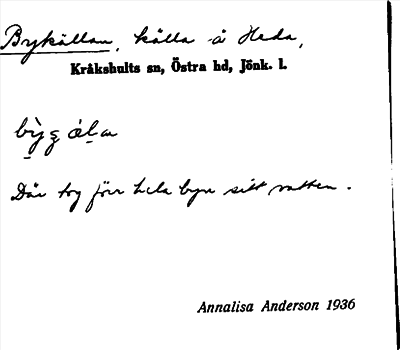 Brykällan, källa å Heda,
Kråkshults sn, Östra hd, Jönk. l.
Där tog förr hela byn sitt vatten.
Annalisa Anderson 1936